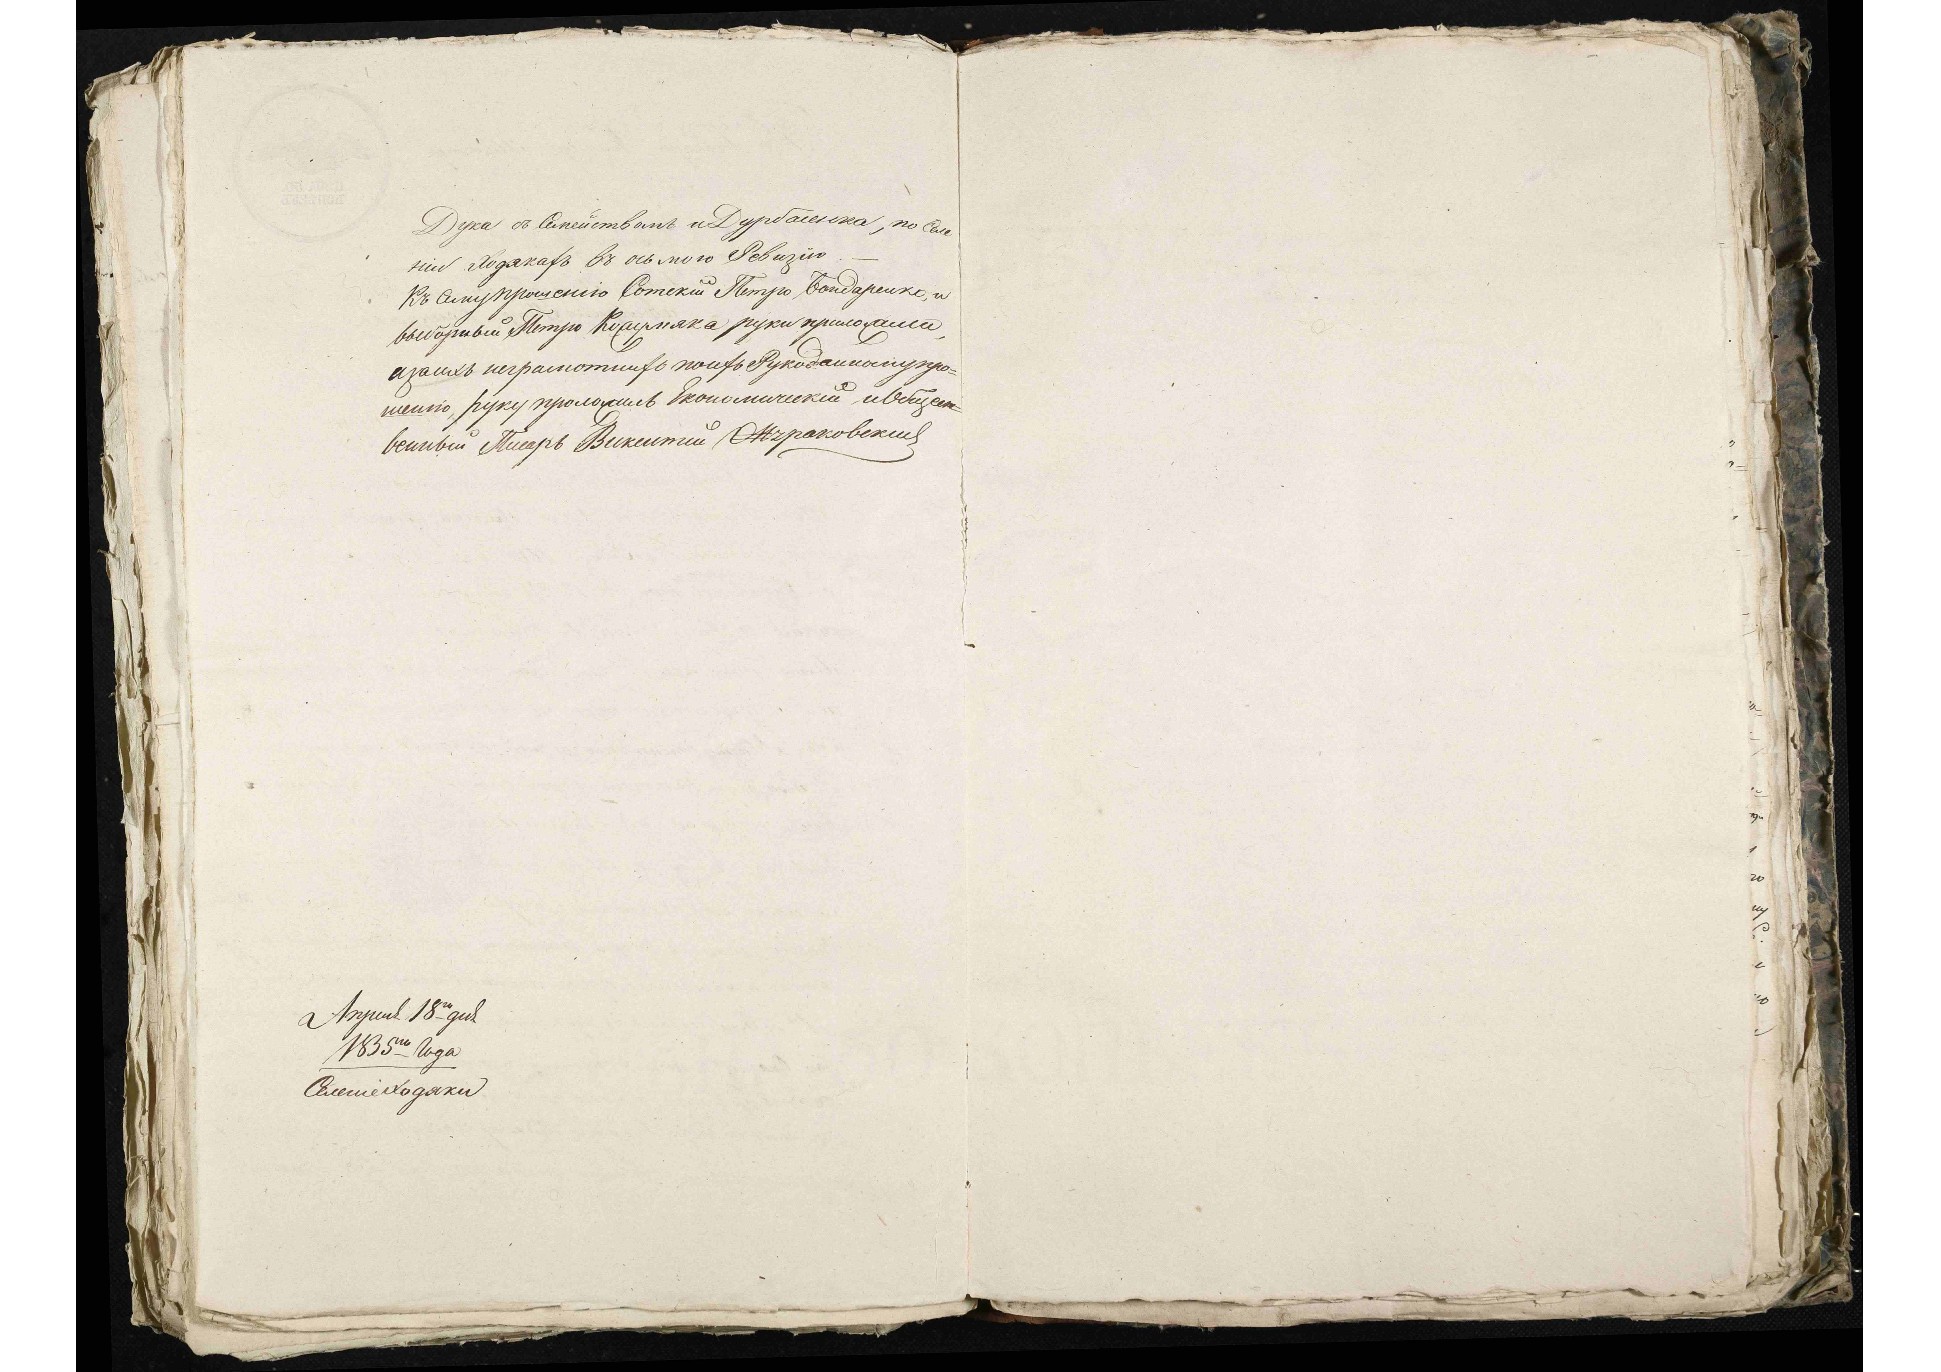 Дука съ Семействомъ и Дурбаленка, по Селе
нiи Ходякахъ въ осьмою Ревизiю. —
Къ сему прошенiю Сотскiй Петро Бондаренко, и
выборный Петро руки приложили,
а заихъ неграмотныхъ поихъ Рукоданному про=
шенiю, руку проложилъ Економическiй и Общест=
венный Писарь Викентий
Апреля 18го дня
1835го Года
Селенiе Ходяки